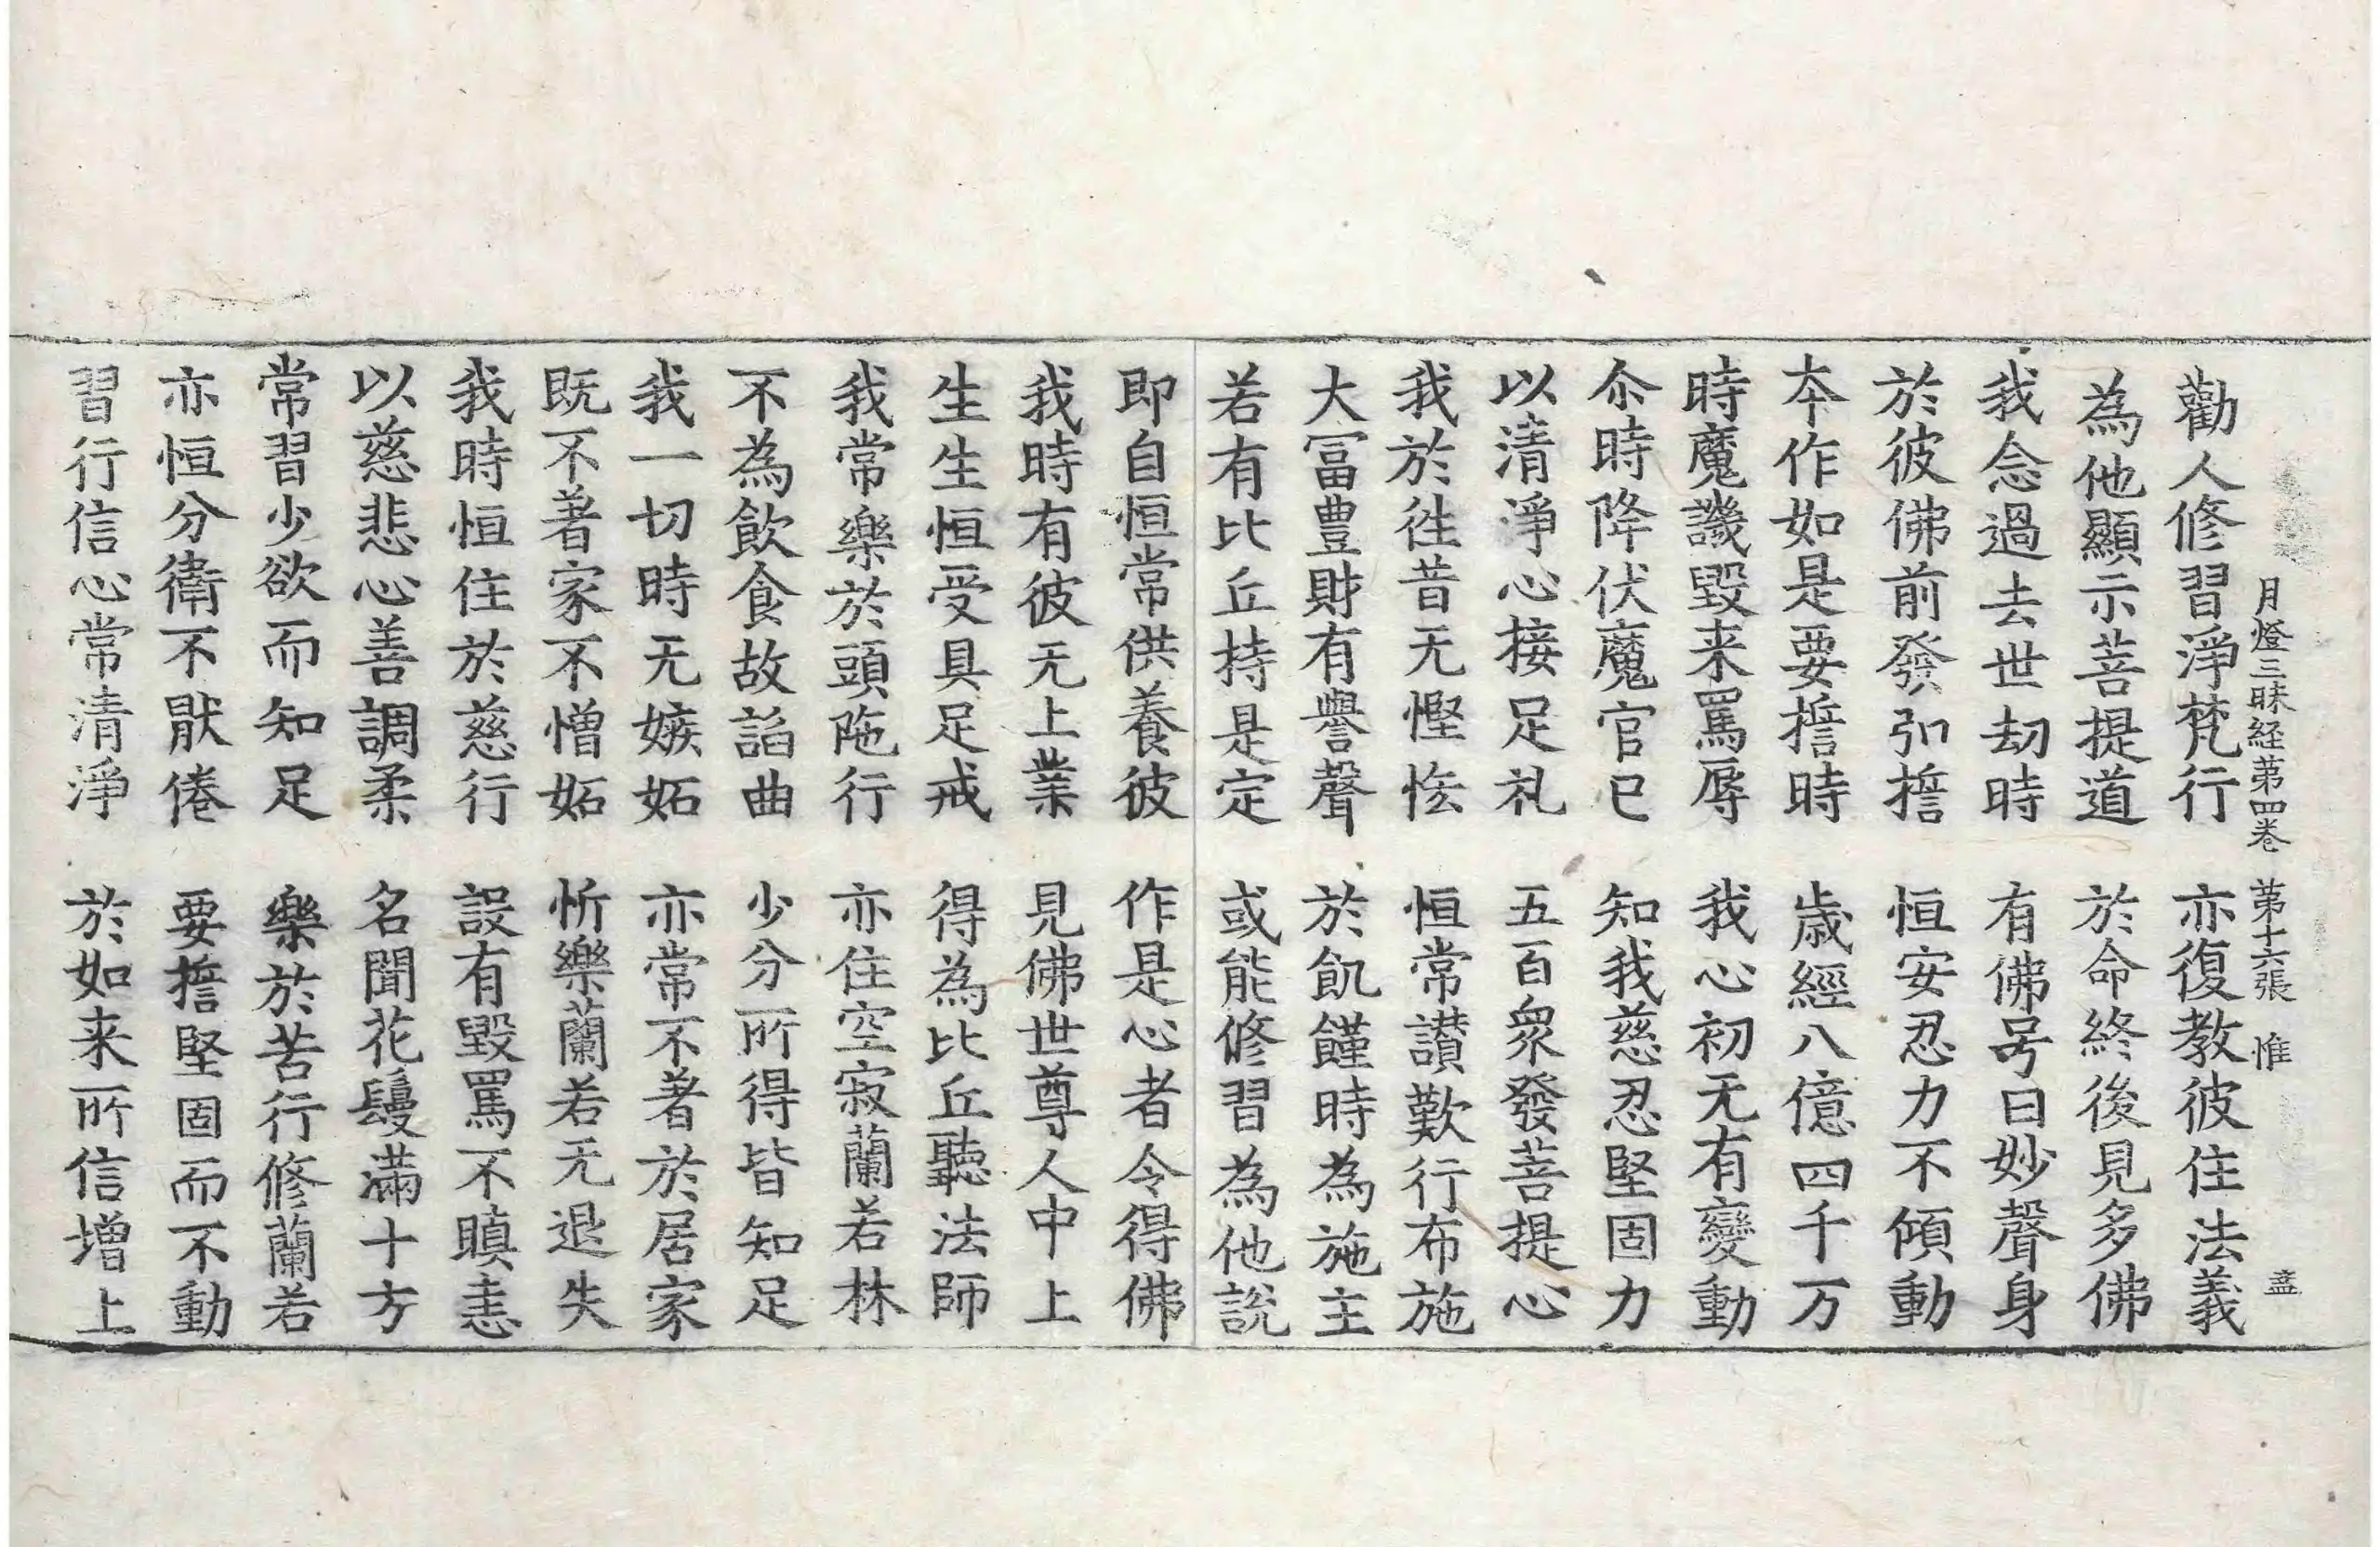 月燈三昧経第四卷 第十六張 惟 盍
勸人修習淨梵行 亦復教彼住法義
為他顯示菩提道 於命終後見多佛
我念過去世劫時 有佛号曰妙聲身
於彼佛前發弘擔 恒安忍力不傾動
本作如是要擔時 歲經八億四千万
時魔譏毀来罵辱 我心初无有變動
尒時降伏魔官已 知我慈忍堅固力
以清淨心接足礼 五百眾發菩提心
我於徃昔无慳悋 恒常讃歎行布施
大冨豊財有譽聲 於飢饉時為施主
若有比丘持是定 或能修習為他說
即自恒常供養彼 作是心者令得佛
我時有彼无上業 見佛世尊人中上
生生恒受具足戒 得為比丘聽法師
我常樂於頭陁行 亦住空寂蘭若林
不為飲食故諂曲 少分所得皆知足
我一切時无嫉妬 亦常不著於居家
既不著家不憎妬 忻樂蘭若无退失
我時恒住於慈行 設有毀罵不瞋恚
以慈悲心善調柔 名聞花鬘滿十方
常習少欲而知足 樂於苦行修蘭若
亦恒分衛不猒倦 要擔堅固而不動
習行信心常清淨 於如来所信增上